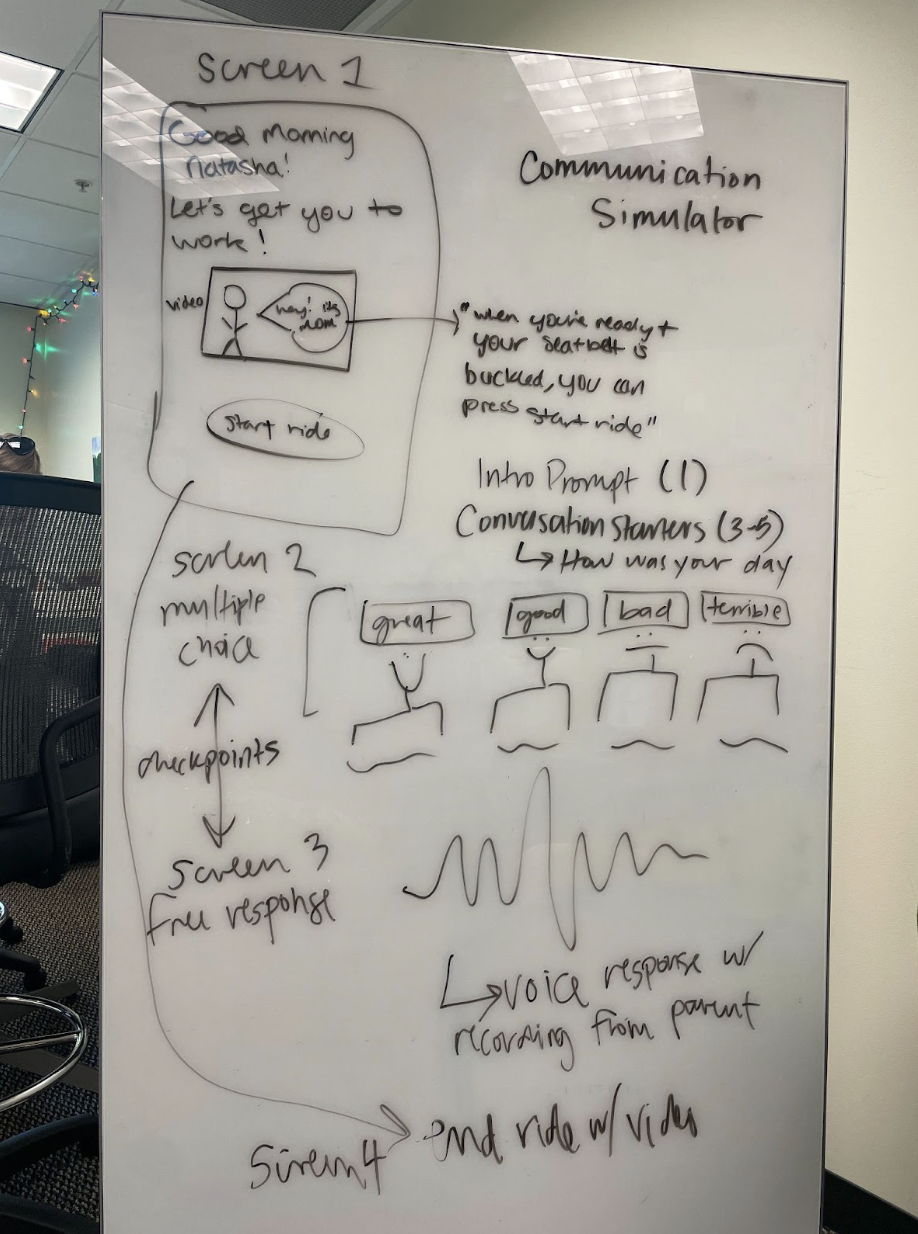 Screen 1
Good Morning
Natasha!
Let's get you to
work!
video
hey! its
mom
start ride
Communication
Simulator
"when you're ready +
your seatbelt is
buckled, you can
press start ride"
Intro Prompt (1)
Conversation Starters (3-5)
↳ How was your day
Screen 2
multiple
choice
great
good
bad
terrible
checkpoints
Screen 3
free response
↳ voice response w/
recording from parent
Screen 4
end ride w/ video